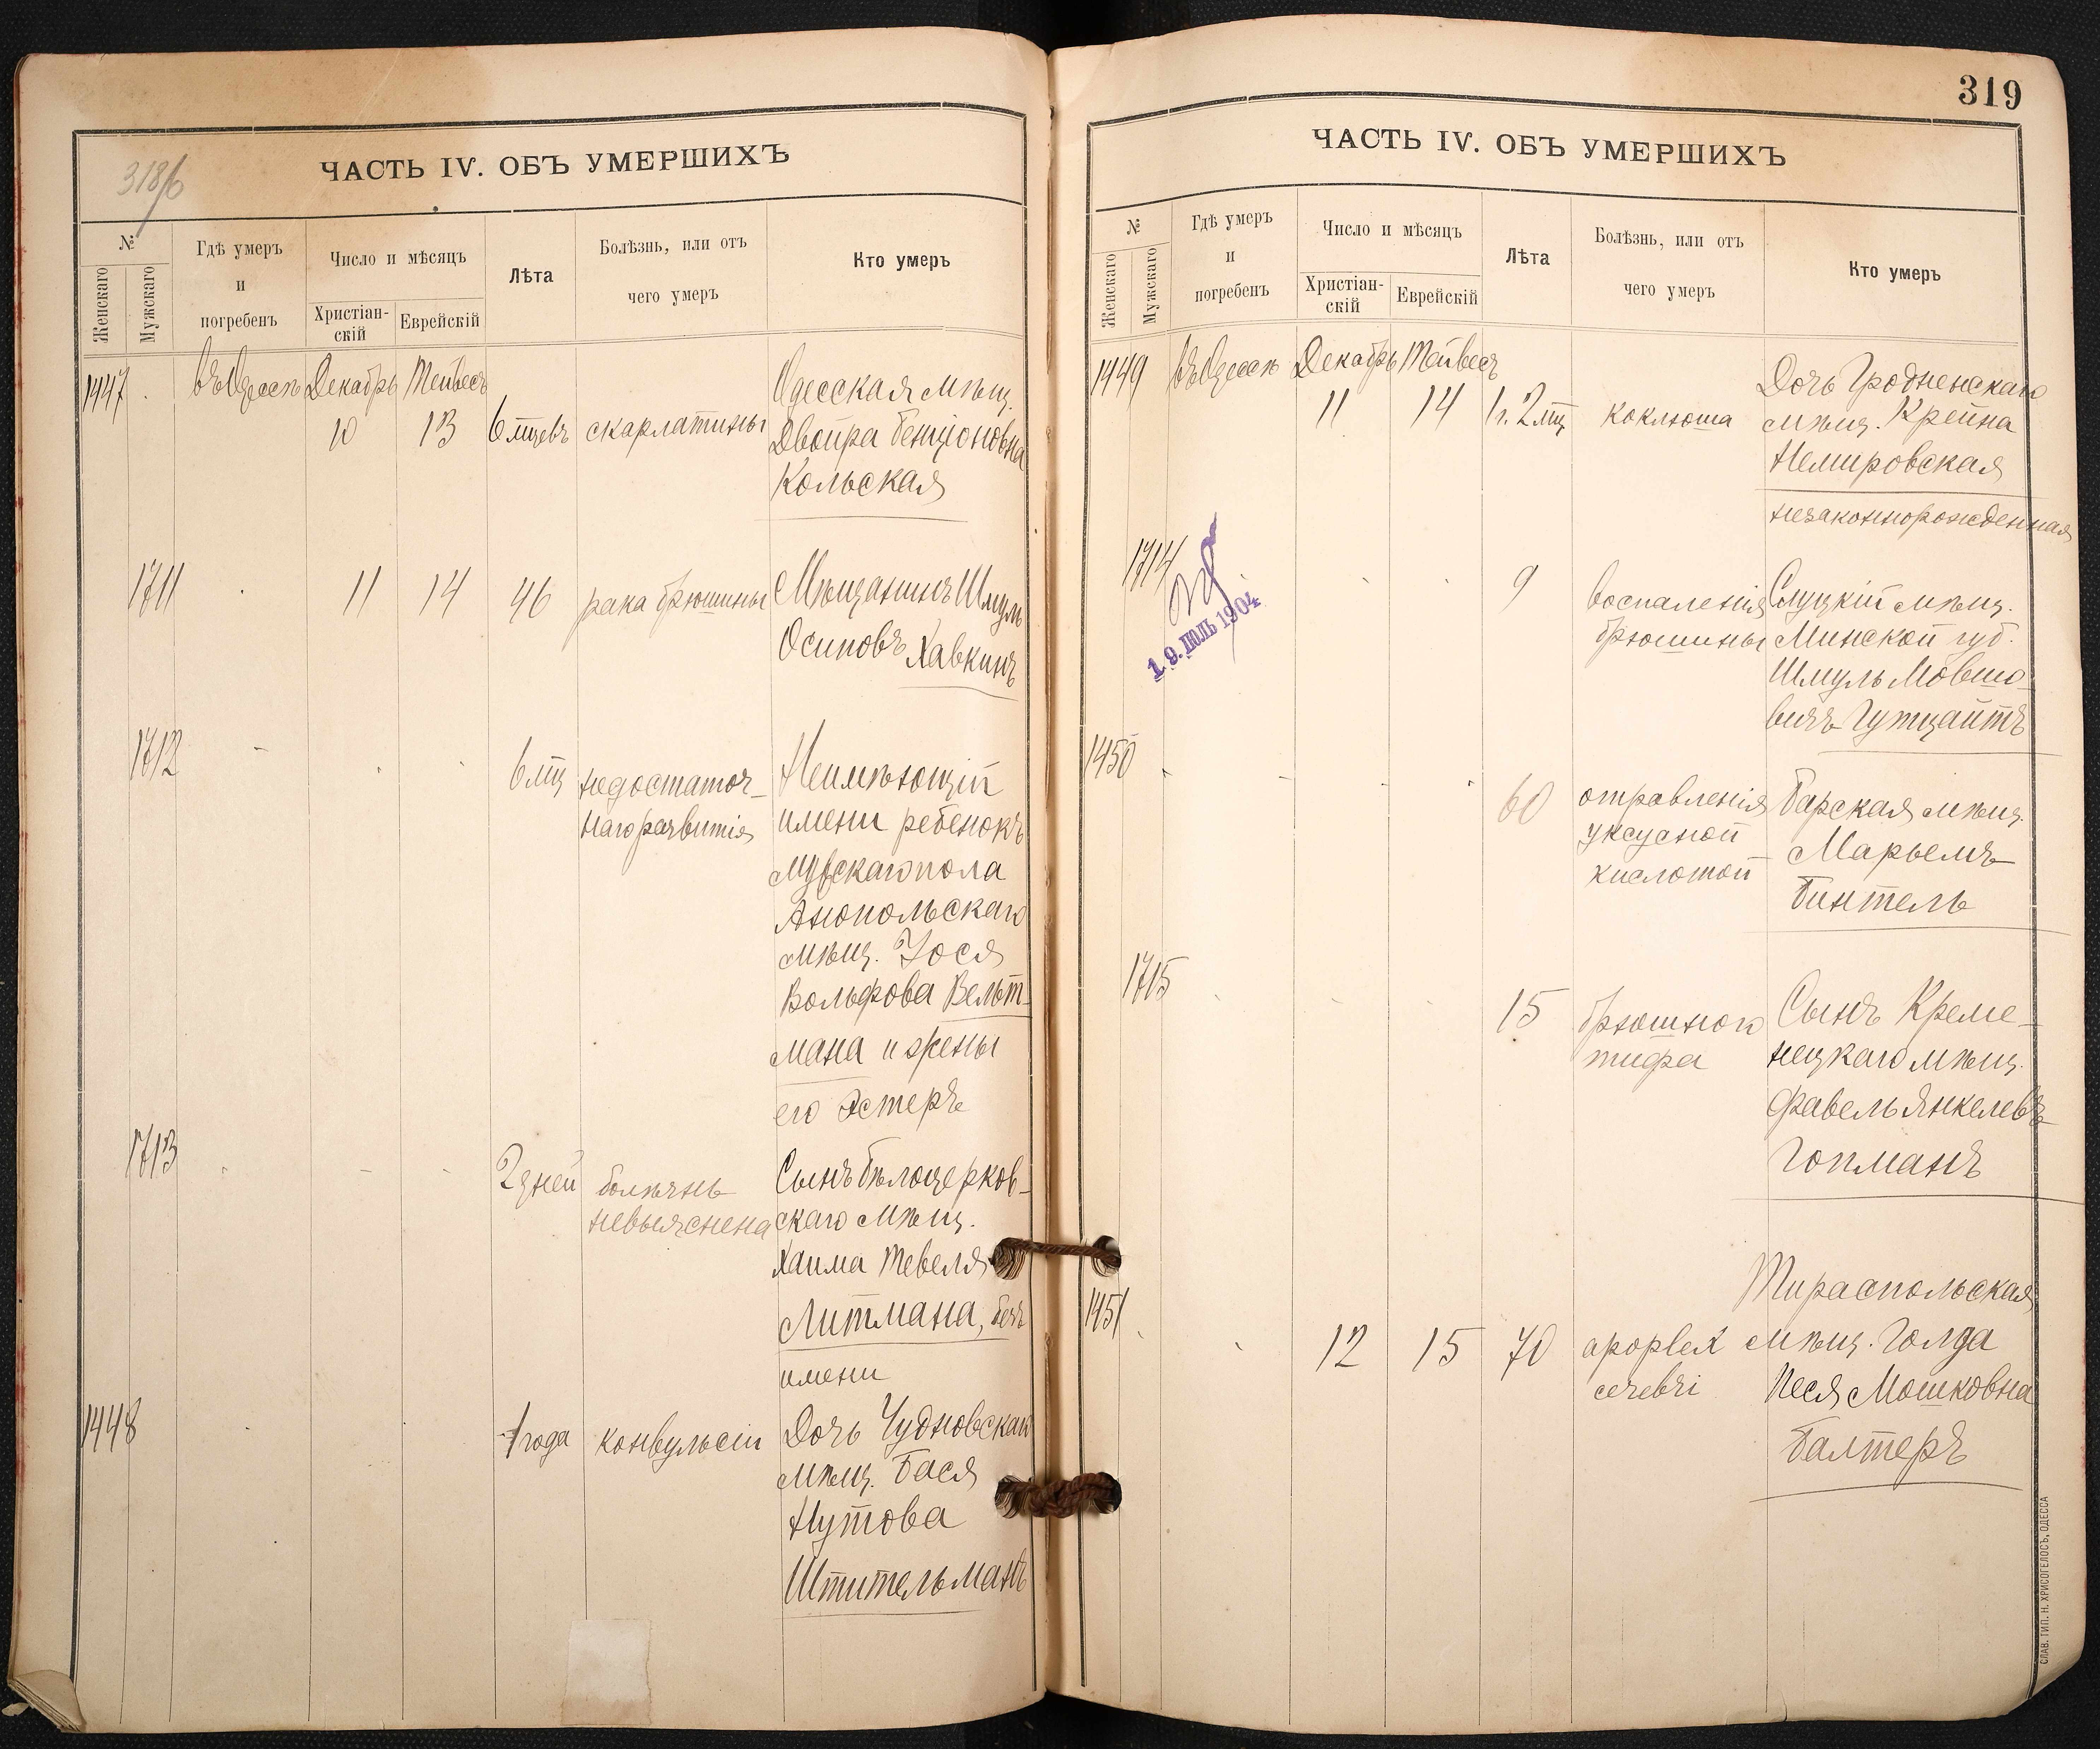 318/б
ЧАСТЬ IV. ОБЪ УМЕРШИХЪ
№
Женскаго
Мужскаго
Гдѣ умеръ
и
погребенъ
Число и мѣсяцъ
Христіан-
скій
Еврейскій
Лѣта
Болѣзнь, или отъ
чего умеръ
Кто умеръ
1447 въ Одессѣ Декабрь Тейвесъ Одесская мѣщ.
10 13 6 мцевъ скарлатины Двойра Бенціоновна
Кольская
1711 11 14 46 рака брюшины Мѣщанинъ Шмуль
Осиповъ Хавкинъ
1712 6 мц недостаточ- Неимѣющій
наго развитія имени ребенокъ
мужскаго пола
Анопольскаго
мѣщ. Іося
Вольфова Вельт-
мана и жены
его Эстеръ
1713 2 дней болѣзнь Сынъ Бѣлоцерков-
невыяснена скаго мѣщ.
Хаима Тевеля
Литмана, безъ
имени
1448 1 года конвульсіи Дочь Чудновскаго
мѣщ. Бася
Нутова
Штительманъ
319
ЧАСТЬ IV. ОБЪ УМЕРШИХЪ
№
Женскаго
Мужскаго
Гдѣ умеръ
и
погребенъ
Число и мѣсяцъ
Христіан-
скій
Еврейскій
Лѣта
Болѣзнь, или отъ
чего умеръ
Кто умеръ
1449 въ Одессѣ Декабрь Тейвесъ Дочь Гродненскаго
11 14 1 г. 2 мц коклюша мѣщ. Крейна
Немировская
незаконнорожденная
1714 9 воспаленія Слуцкій мѣщ.
брюшины Минской губ.
Шмуль Мовшо-
вичъ Гутцайтъ
19. ІЮЛЬ 1904
1450 60 отравленія Барская мѣщ.
уксусной Марьемъ
кислотой Бинтель
1715 15 брюшного Сынъ Креме-
тифа нецкаго мѣщ.
Файвель Янкелевъ
Гопманъ
Тираспольская
1451 12 15 70 apoplex мѣщ. Голда
Песя Мошковна
Балтеръ
СЛАВ. ТИП. Н. ХРИСОГЕЛОСЪ, ОДЕССА